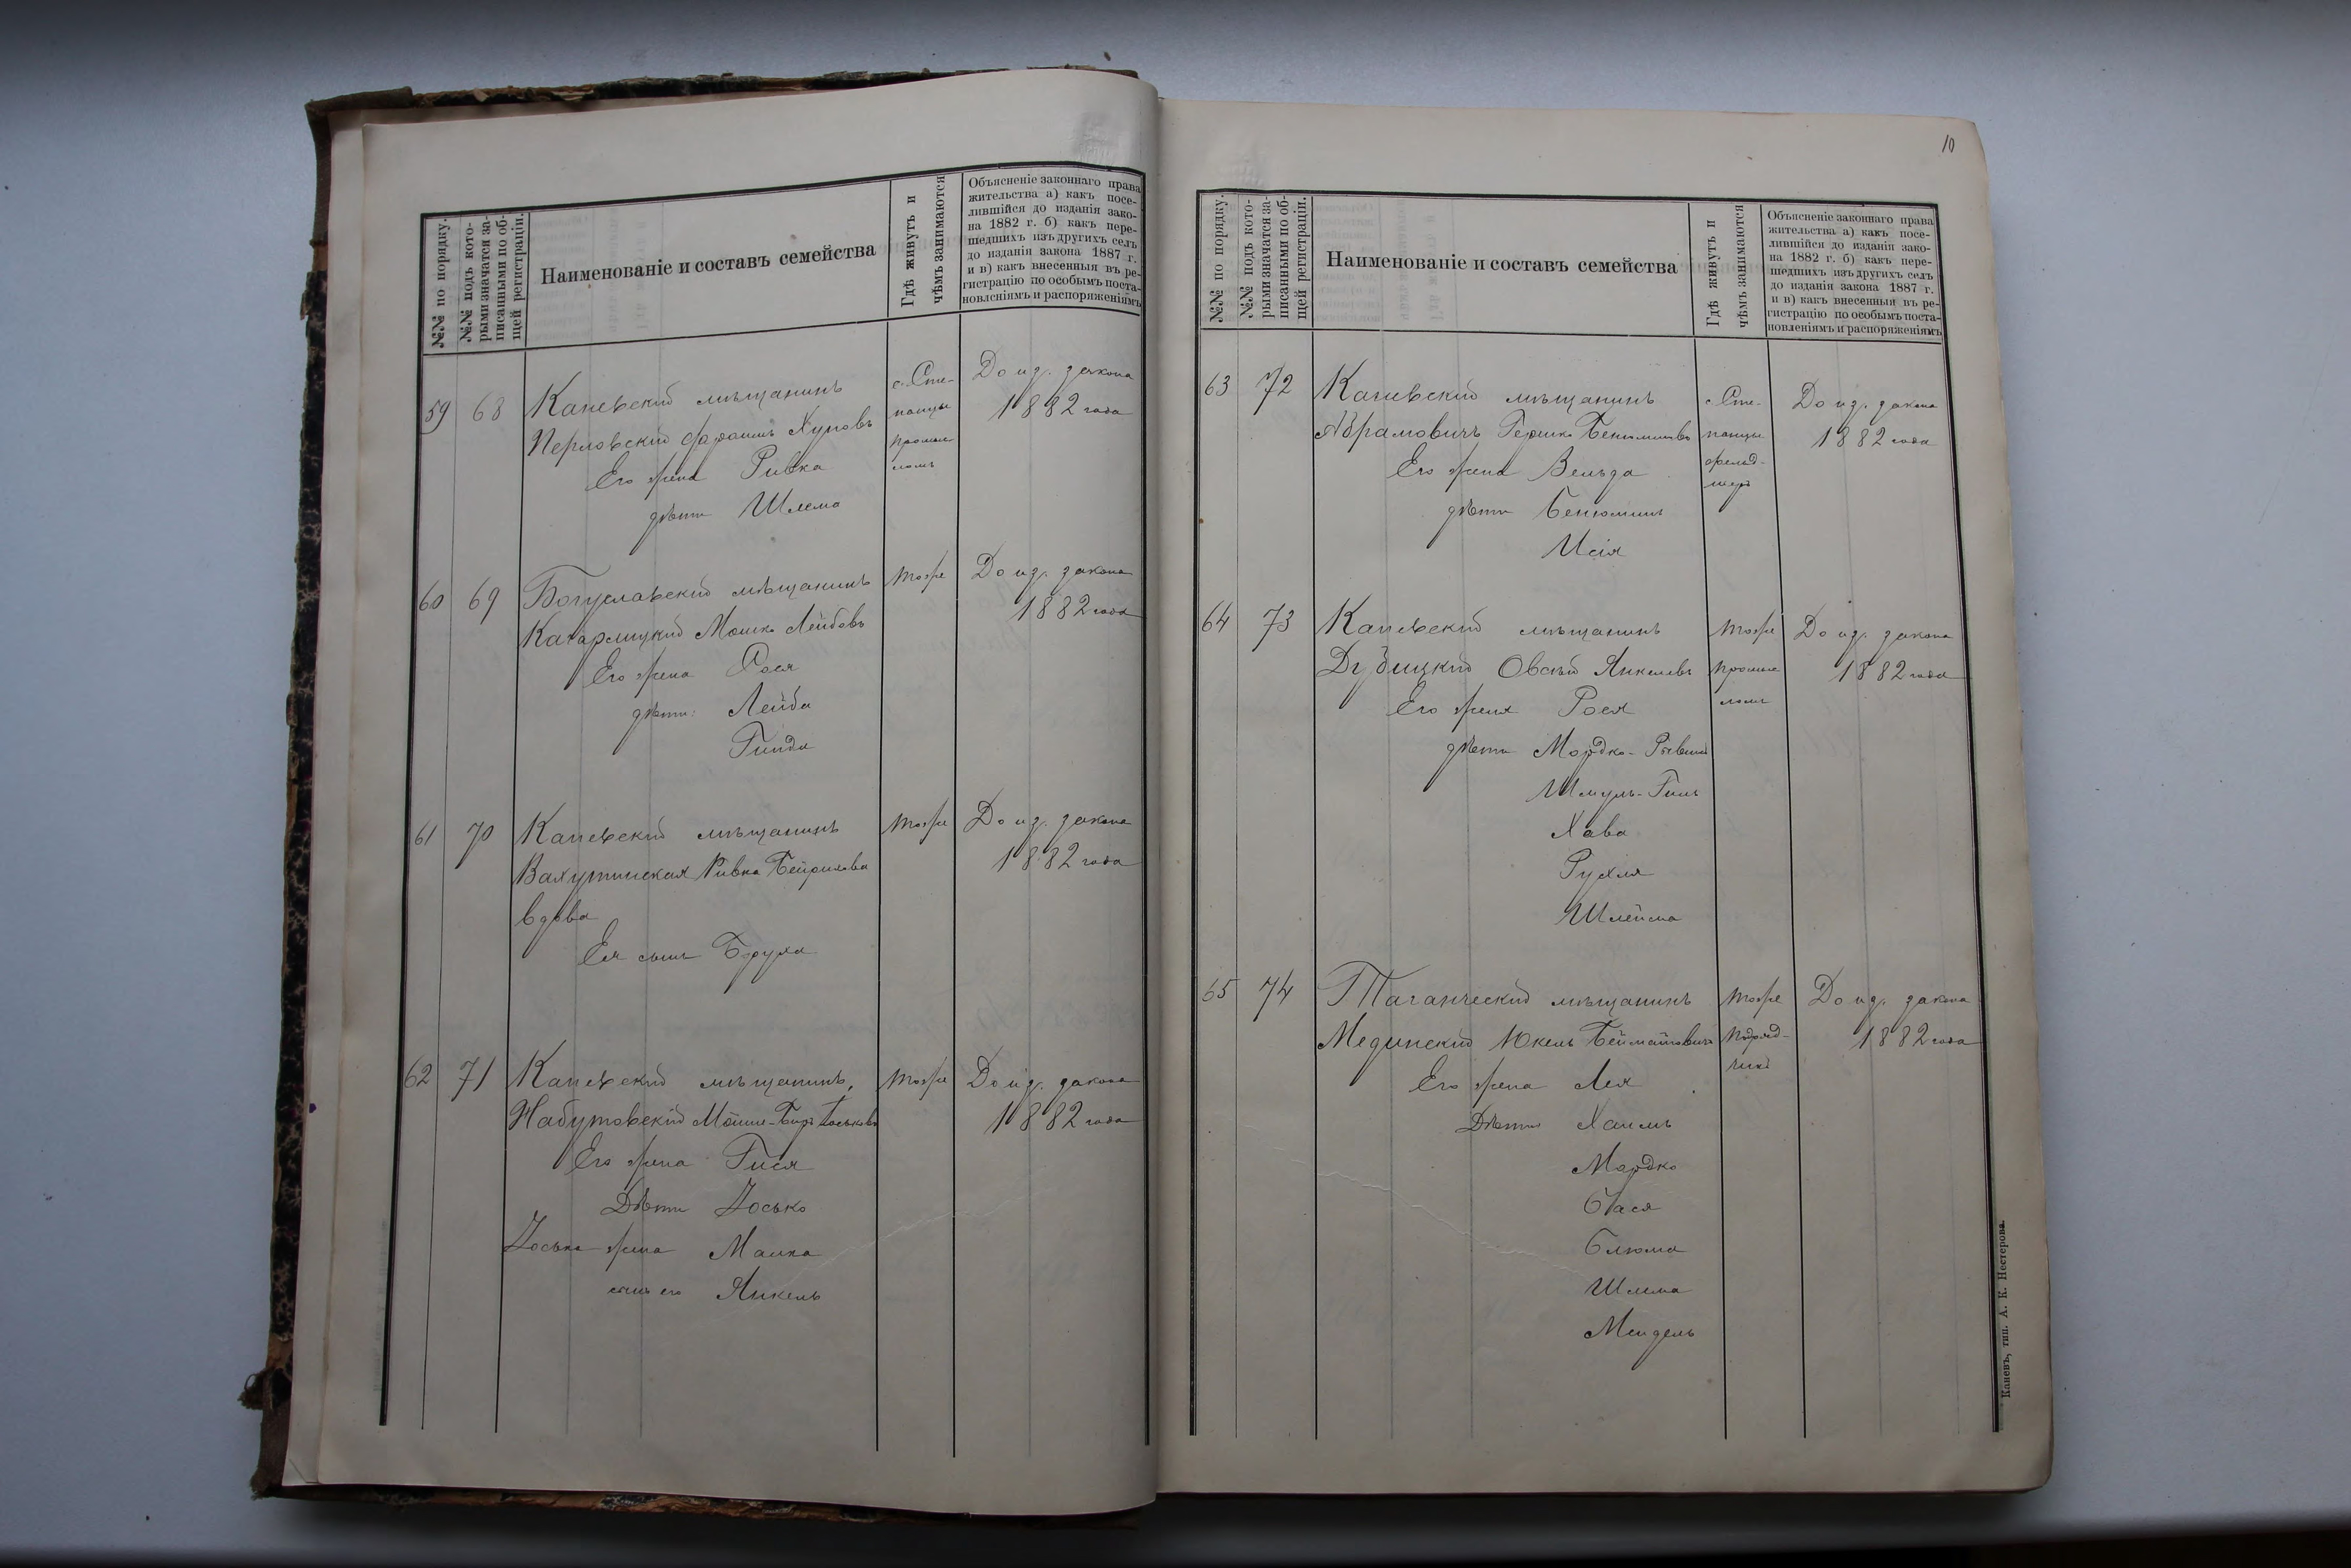 №№ по порядку.
№№ подъ кото-
рыми значатся за-
писанными по об-
щей регистраціи.
Наименованіе и составъ семейства
Гдѣ живутъ и
чѣмъ занимаются
Объясненіе законнаго права
жительства а) какъ посе-
лившійся до изданія зако-
на 1882 г. б) какъ пере-
шедшихъ изъ другихъ селъ
до изданія закона 1887 г.
и в) какъ внесенныя въ ре-
гистрацію по особымъ поста-
новленіямъ и распоряженіямъ
59 68 Каневскій мѣщанинъ
Перловскій Фроимъ Хуновъ
Его жена Ривка
дѣти Шлема
с. Сте-
панцы
промыс
ломъ
До изд. закона
1882 года
60 69 Богуславскій мѣщанинъ
Кагарлицкій Мошко Лейбовъ
Его жена Рося
дѣти: Лейба
Гинда
тоже
До изд. закона
1882 года
61 70 Каневскій мѣщанинъ
Вахутинская Ривка
вдова
Ея сынъ Борухъ
тоже
До изд. закона
1882 года
62 71 Каневскій мѣщанинъ,
Набутовскій Іоськовъ
Его жена Гися
Дѣти Іосько
Іоська жена Малка
сынъ его Янкель
тоже
До изд. закона
1882 года
10
№№ по порядку.
№№ подъ кото-
рыми значатся за-
писанными по об-
щей регистраціи.
Наименованіе и составъ семейства
Гдѣ живутъ и
чѣмъ занимаются
Объясненіе законнаго права
жительства а) какъ посе-
лившійся до изданія зако-
на 1882 г. б) какъ пере-
шедшихъ изъ другихъ селъ
до изданія закона 1887 г.
и в) какъ внесенныя въ ре-
гистрацію по особымъ поста-
новленіямъ и распоряженіямъ
63 72 Каневскій мѣщанинъ
Абрамовичъ Гершко Бенюминовъ
Его жена Вельда
дѣти Бенюминъ
Исія
с. Сте-
панцы
фельд-
шеръ
До изд. закона
1882 года
64 73 Каневскій мѣщанинъ
Дубицкій Овсѣй Янкелевъ
Его жена Рося
дѣти Мордко-
Шмуль-
Хава
Рухля
Шлейма
тоже
промыс
ломъ
До изд. закона
1882 года
65 74 Таганческій мѣщанинъ
Мединскій Юкель
Его жена Лея
Дѣти Хаимъ
Мордко
Бася
Блюма
Шлема
Мендель
тоже
подряд-
чикъ
До изд. закона
1882 года
Каневъ, тип. А. К. Нестерова.